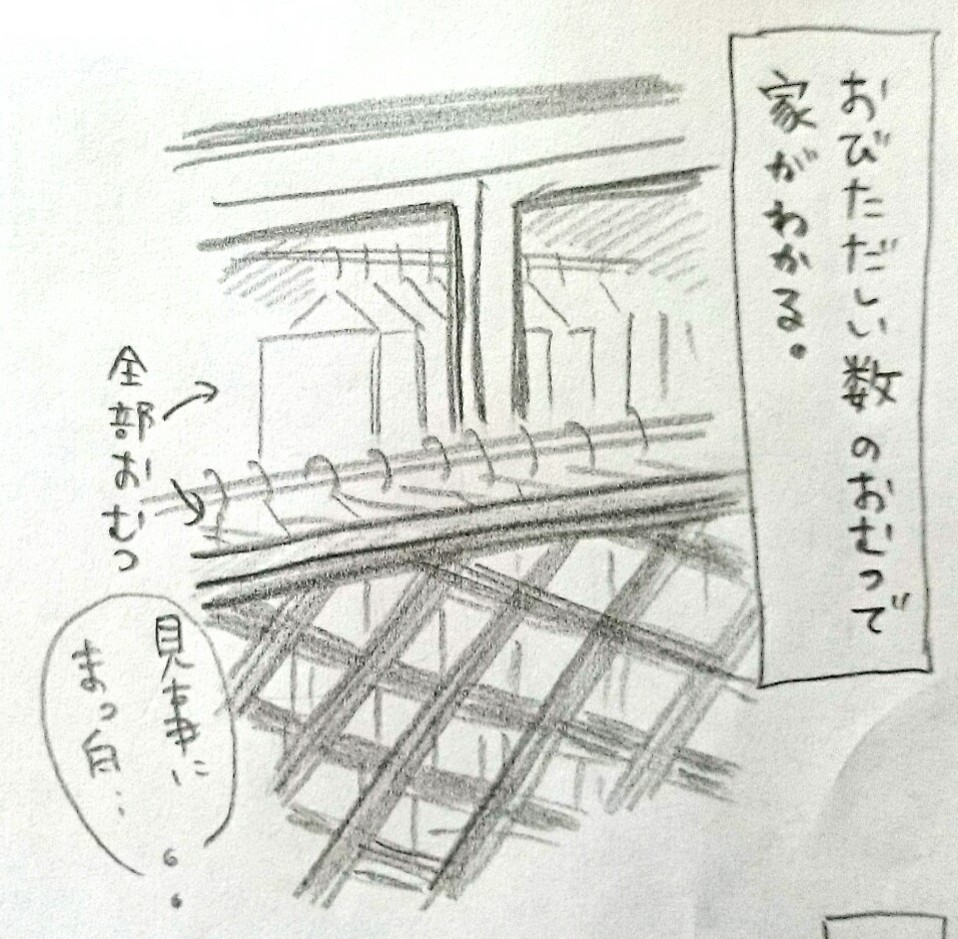 おびただしい数のおむつで
家がわかる。
全部おむつ
見事に
まっ白…